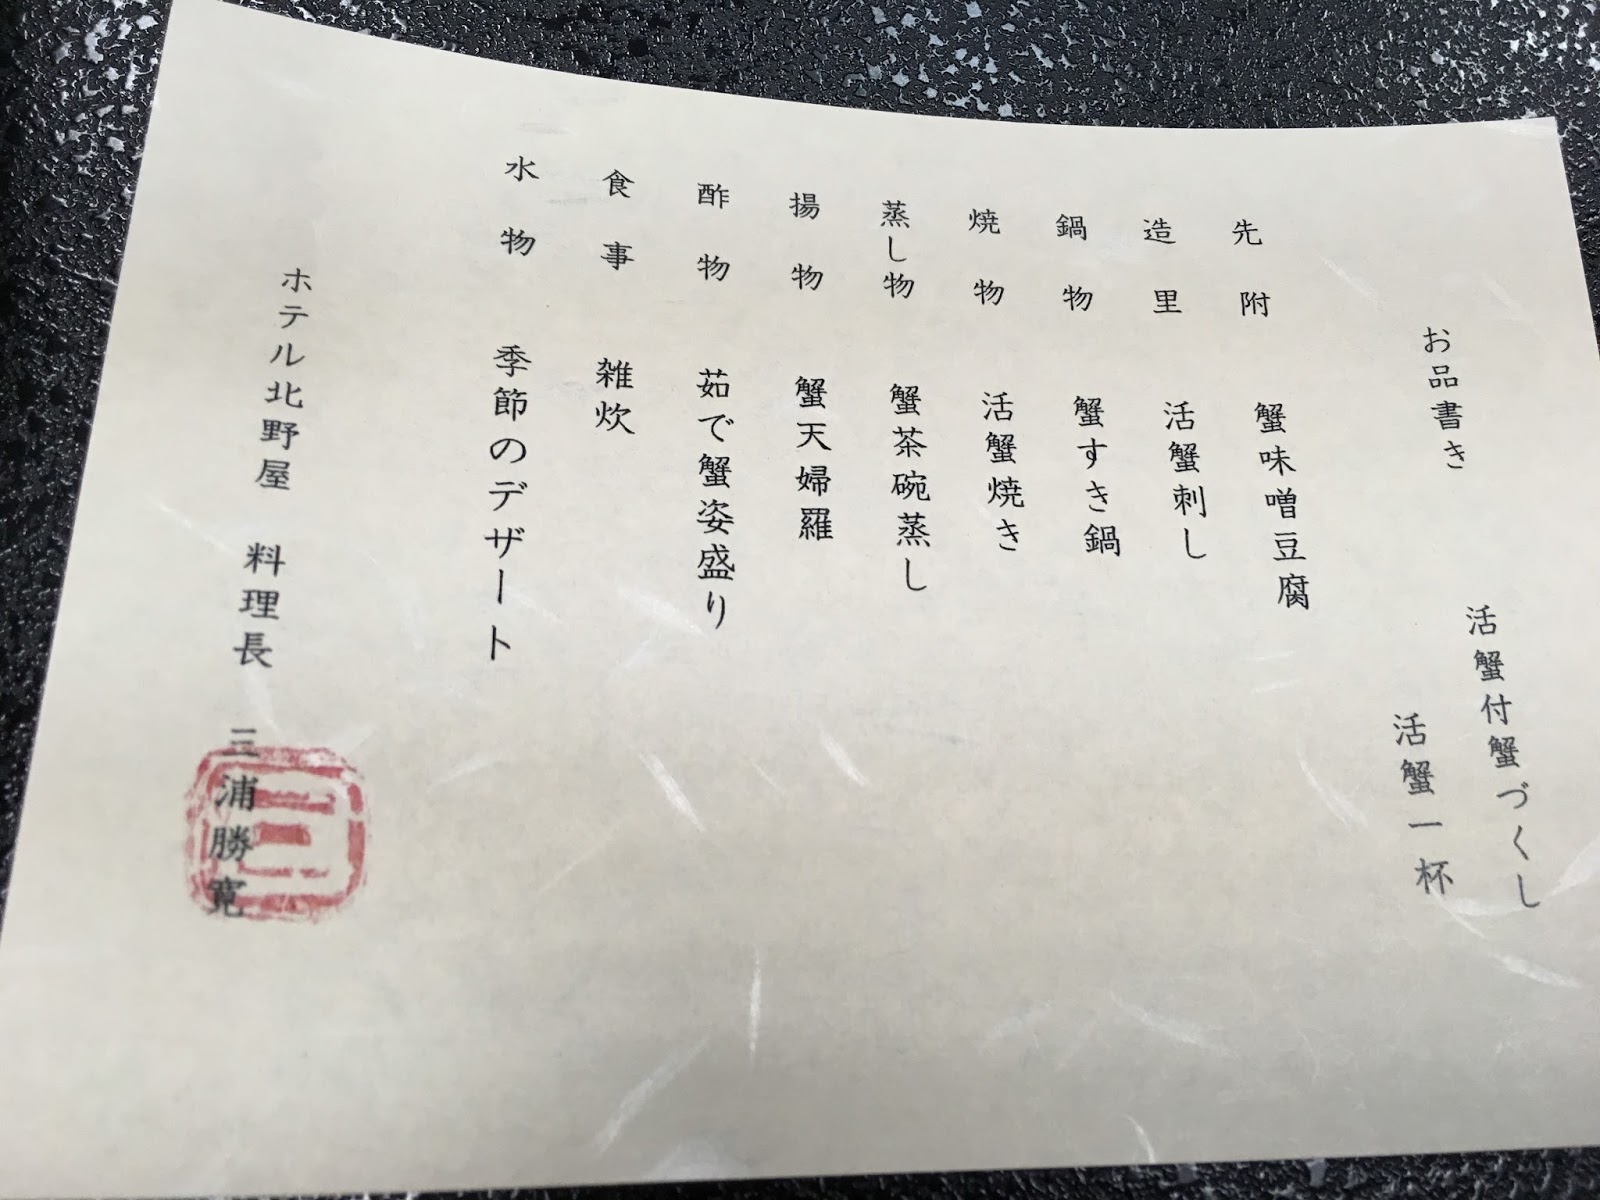 お品書き
活蟹付蟹づくし
活蟹一杯
先附 蟹味噌豆腐
造里 活蟹刺し
鍋物 蟹すき鍋
焼物 活蟹焼き
蒸し物 蟹茶碗蒸し
揚物 蟹天婦羅
酢物 茹で蟹姿盛り
食事 雑炊
水物 季節のデザート
ホテル北野屋 料理長 三浦勝寛